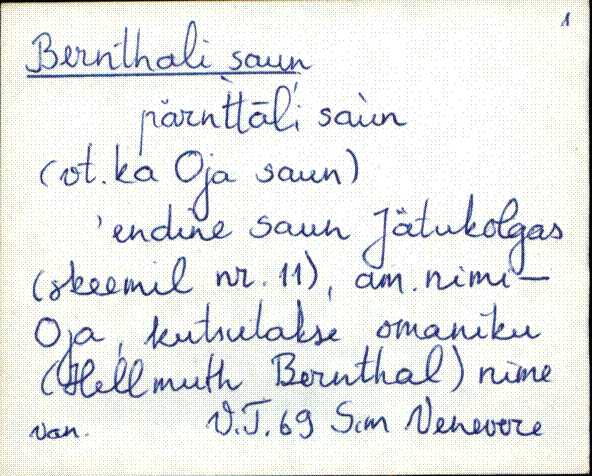 1
Bernthali saun
pärnt̀tāĺi saùn
(vt. ka Oja saun)
'endine saun Jätukolgas
(skeemil nr. 11), am. nimi –
Oja, kutsutakse omaniku
(Hellmuth Bernthal) nime
van. V.T. 69 Sim Venevere